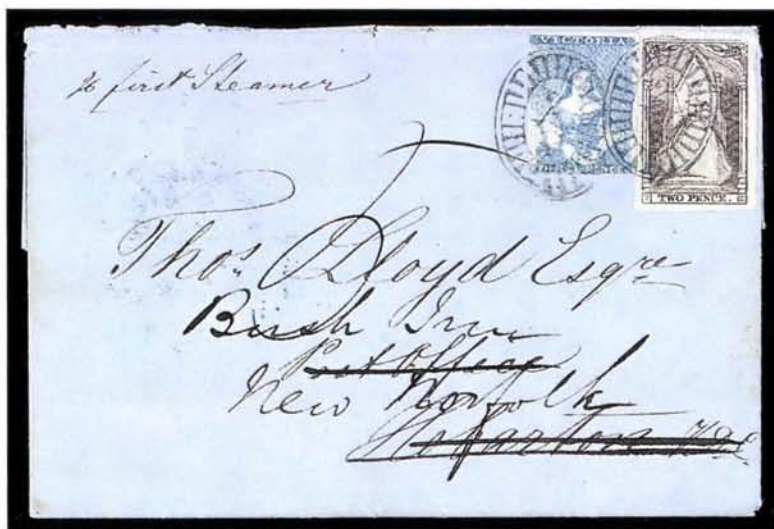 VICTORIA
first Steamer
TWO PENCE.
Thos. Lloyd Esqre
Bush Inn
Post Office
New Norfolk
Hobarton